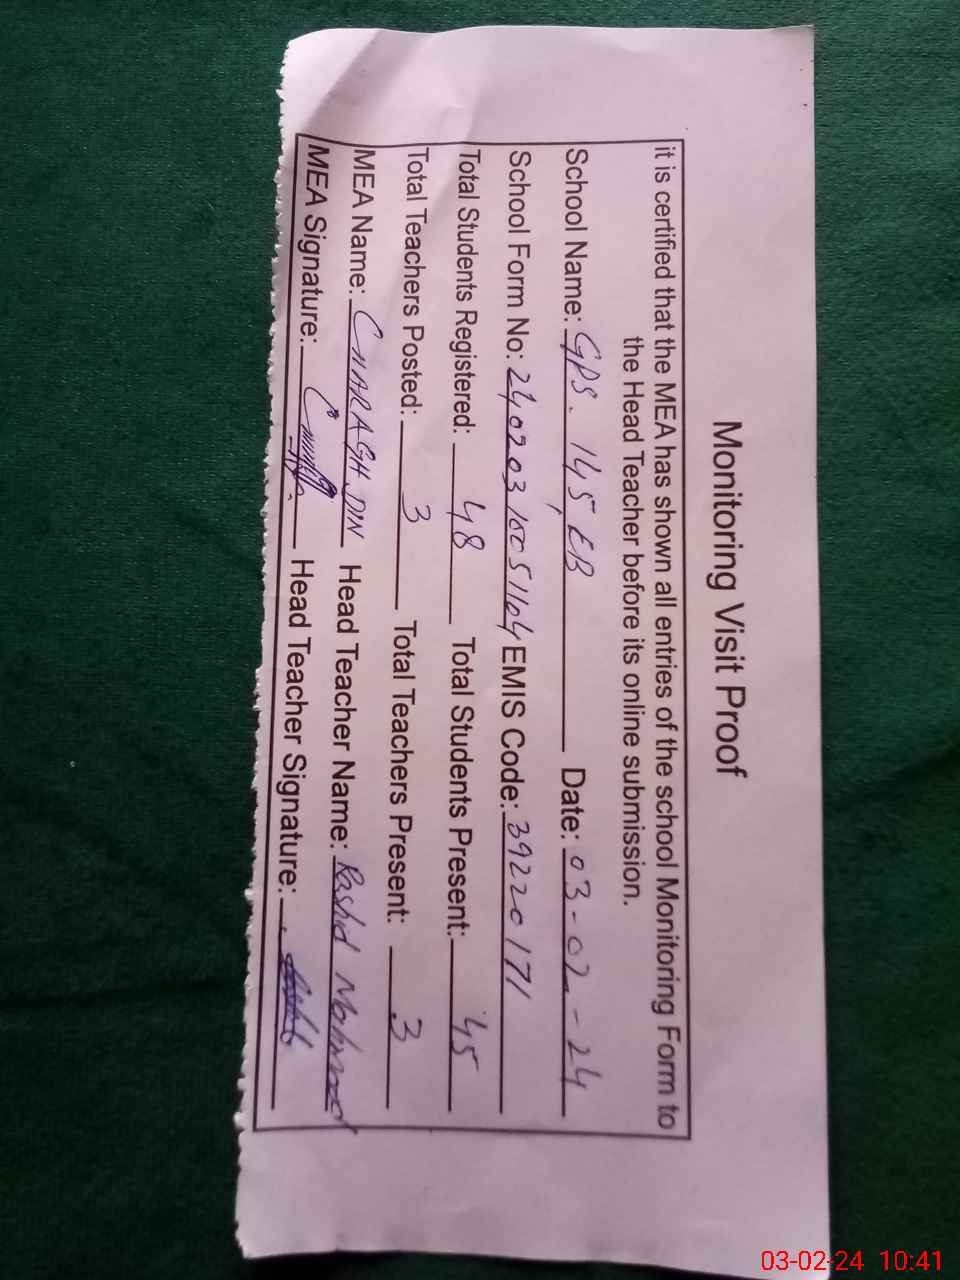 Monitoring Visit Proof
it is certified that the MEA has shown all entries of the school Monitoring Form to
the Head Teacher before its online submission.
School Name: GPS. 145, EB Date: 03-02-24
School Form No: EMIS Code: 39220171
Total Students Registered: 48 Total Students Present: 45
Total Teachers Posted: 3 Total Teachers Present: 3
MEA Name: CHARAGH.DIN Head Teacher Name: Rashid Mahmood
MEA Signature: Head Teacher Signature:
03-02-24 10:41